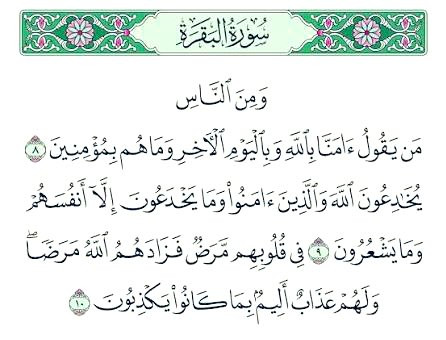 سُورَةُ البَقَرَةِ
وَمِنَ ٱلنَّاسِ
مَن يَقُولُ ءَامَنَّا بِٱللَّهِ وَبِٱلْيَوْمِ ٱلْءَاخِرِ وَمَا هُم بِمُؤْمِنِينَ ٨
يُخَٰدِعُونَ ٱللَّهَ وَٱلَّذِينَ ءَامَنُوا۟ وَمَا يَخْدَعُونَ إِلَّآ أَنفُسَهُمْ
وَمَا يَشْعُرُونَ ٩ فِى قُلُوبِهِم مَّرَضٌ فَزَادَهُمُ ٱللَّهُ مَرَضًا ۖ
وَلَهُمْ عَذَابٌ أَلِيمٌۢ بِمَا كَانُوا۟ يَكْذِبُونَ ١٠